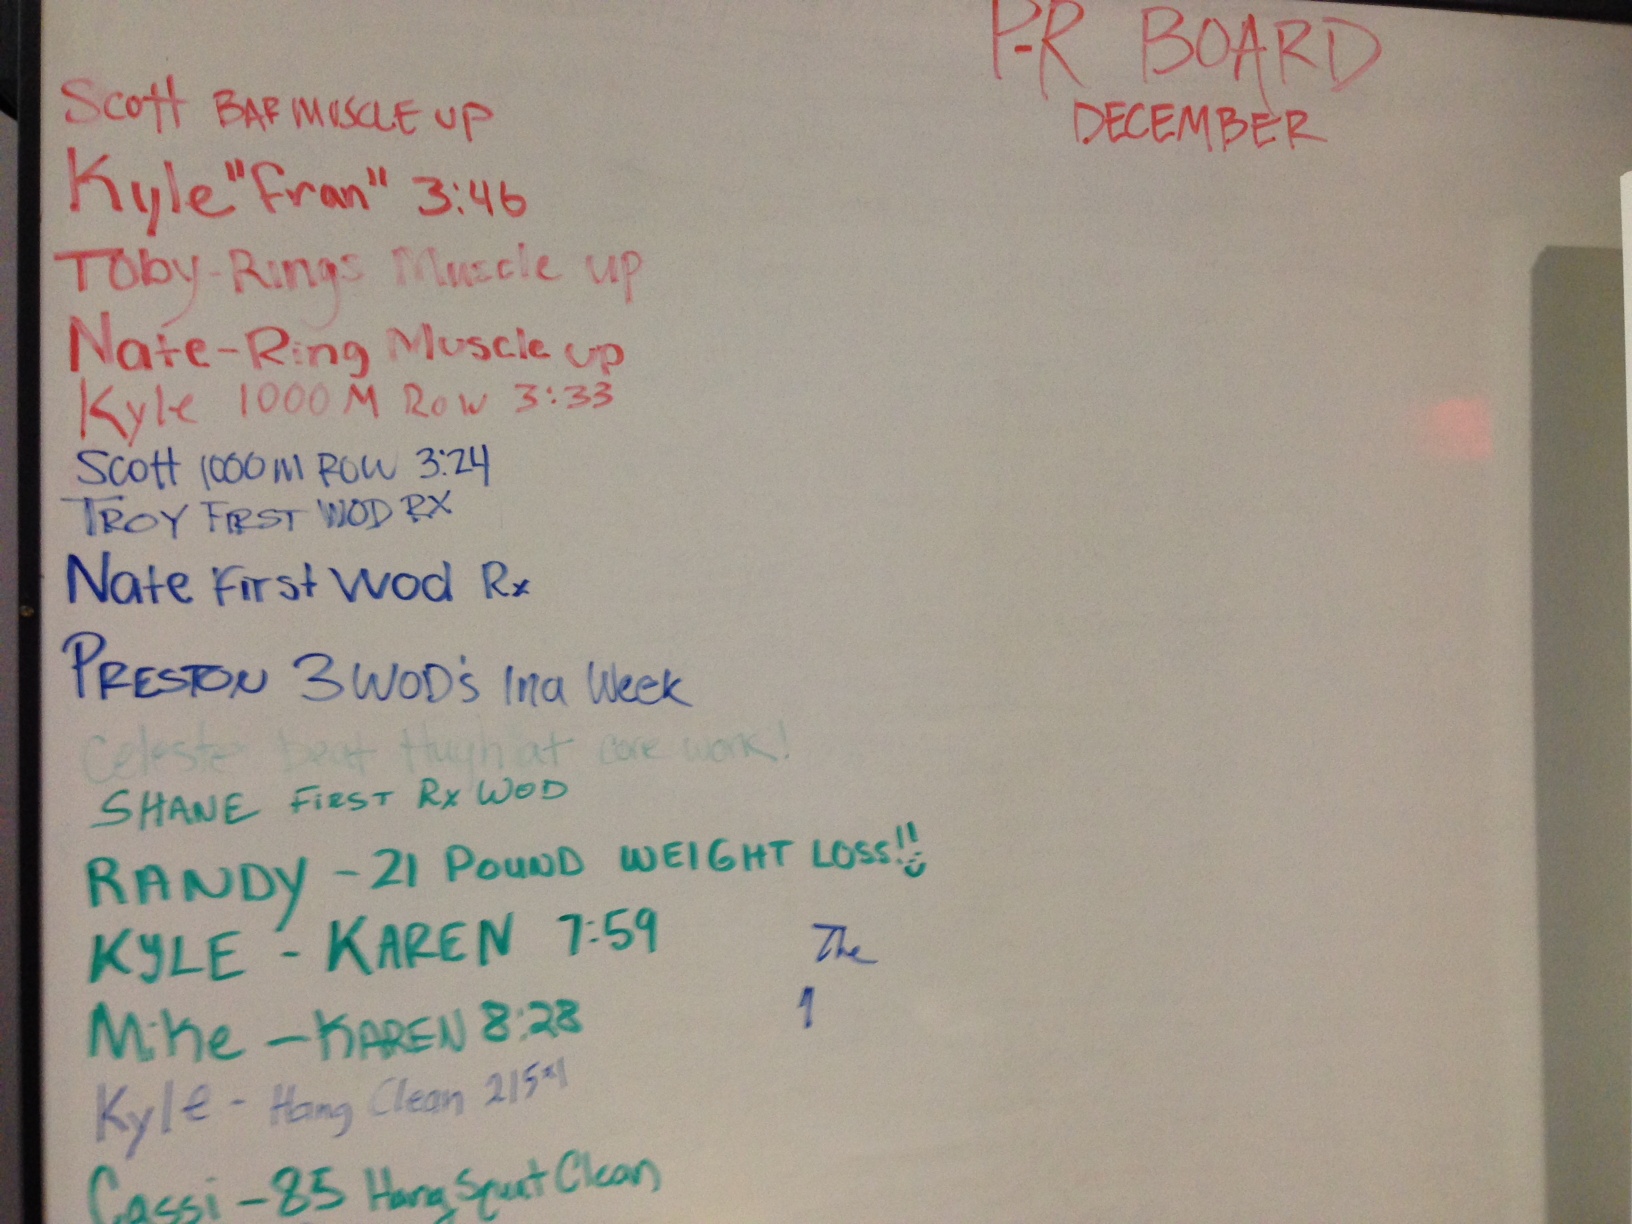 P-R BOARD
DECEMBER
Scott BAR MUSCLE UP
Kyle "Fran" 3:46
Toby-Rings Muscle up
Nate-Ring Muscle up
Kyle 1000 M Row 3:33
Scott 1000 M ROW 3:24
TROY FIRST WOD RX
Nate First Wod Rx
PRESTON 3 WOD's In a Week
Celeste beat Hugh at core work!
SHANE FIRST Rx WOD
RANDY - 21 POUND WEIGHT LOSS!!
KYLE - KAREN 7:59
The
Mike - KAREN 8:28
1
Kyle - Hang Clean 215
Cassi - 85 Hang Squat Clean